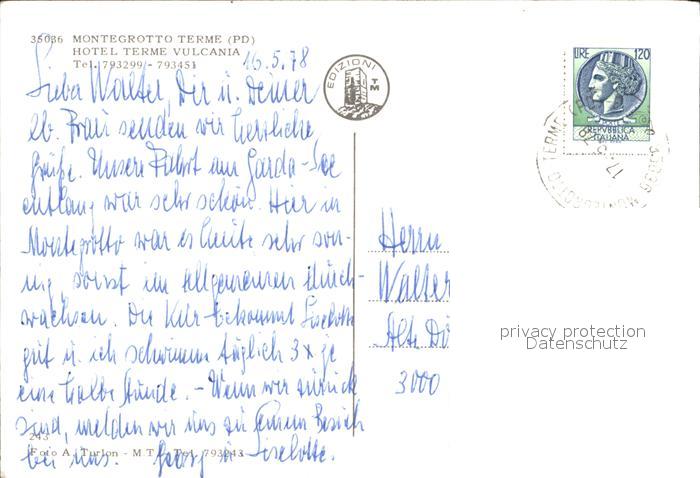 35036 MONTEGROTTO TERME (PD)
HOTEL TERME VULCANIA
Tel. 793299 - 793451
16.5.78
Lieber Walter, Dir u. Deiner
lb. Frau senden wir herzliche
Grüße. Unsere Fahrt am Garda-See
entlang war sehr schön. Hier in
Montegrotto war es heute sehr son-
nig, sonst im allgemeinen durch-
wachsen. Die Kur bekommt Liselotte
gut u. ich schwimm täglich 3 x je
eine halbe Stunde. - Wenn wir zurück
sind, melden wir uns zu einem Besuch
bei uns. Georg u. Liselotte.
243
Foto A. Turlon - M.T. - Tel. 793243
EDIZIONI
TM
LIRE 120
REPVBBLICA
ITALIANA
35036 MONTEGROTTO TERME
17.5.78
Herrn
Walter
Alte Dö
3000
privacy protection
Datenschutz